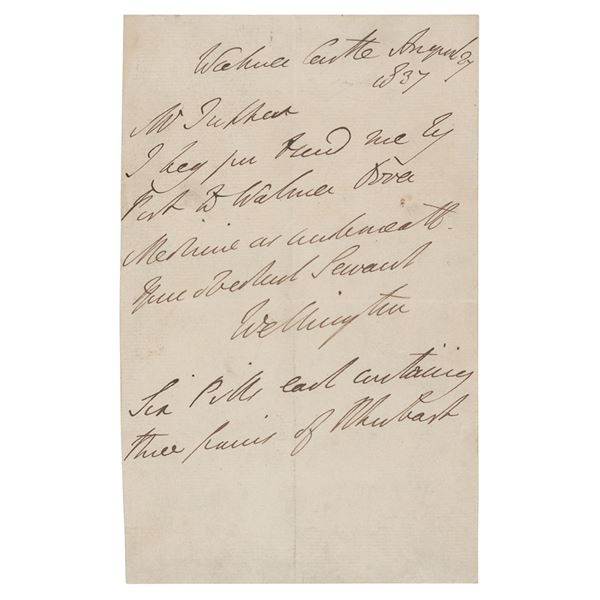 Walmer Castle August 27
1837
Mr
I beg you to send me by
Post to Walmer Dover
Medicine as underneath.
Your obedient Servant
Wellington
Six Pills each containing
three Grains of Rhubarb